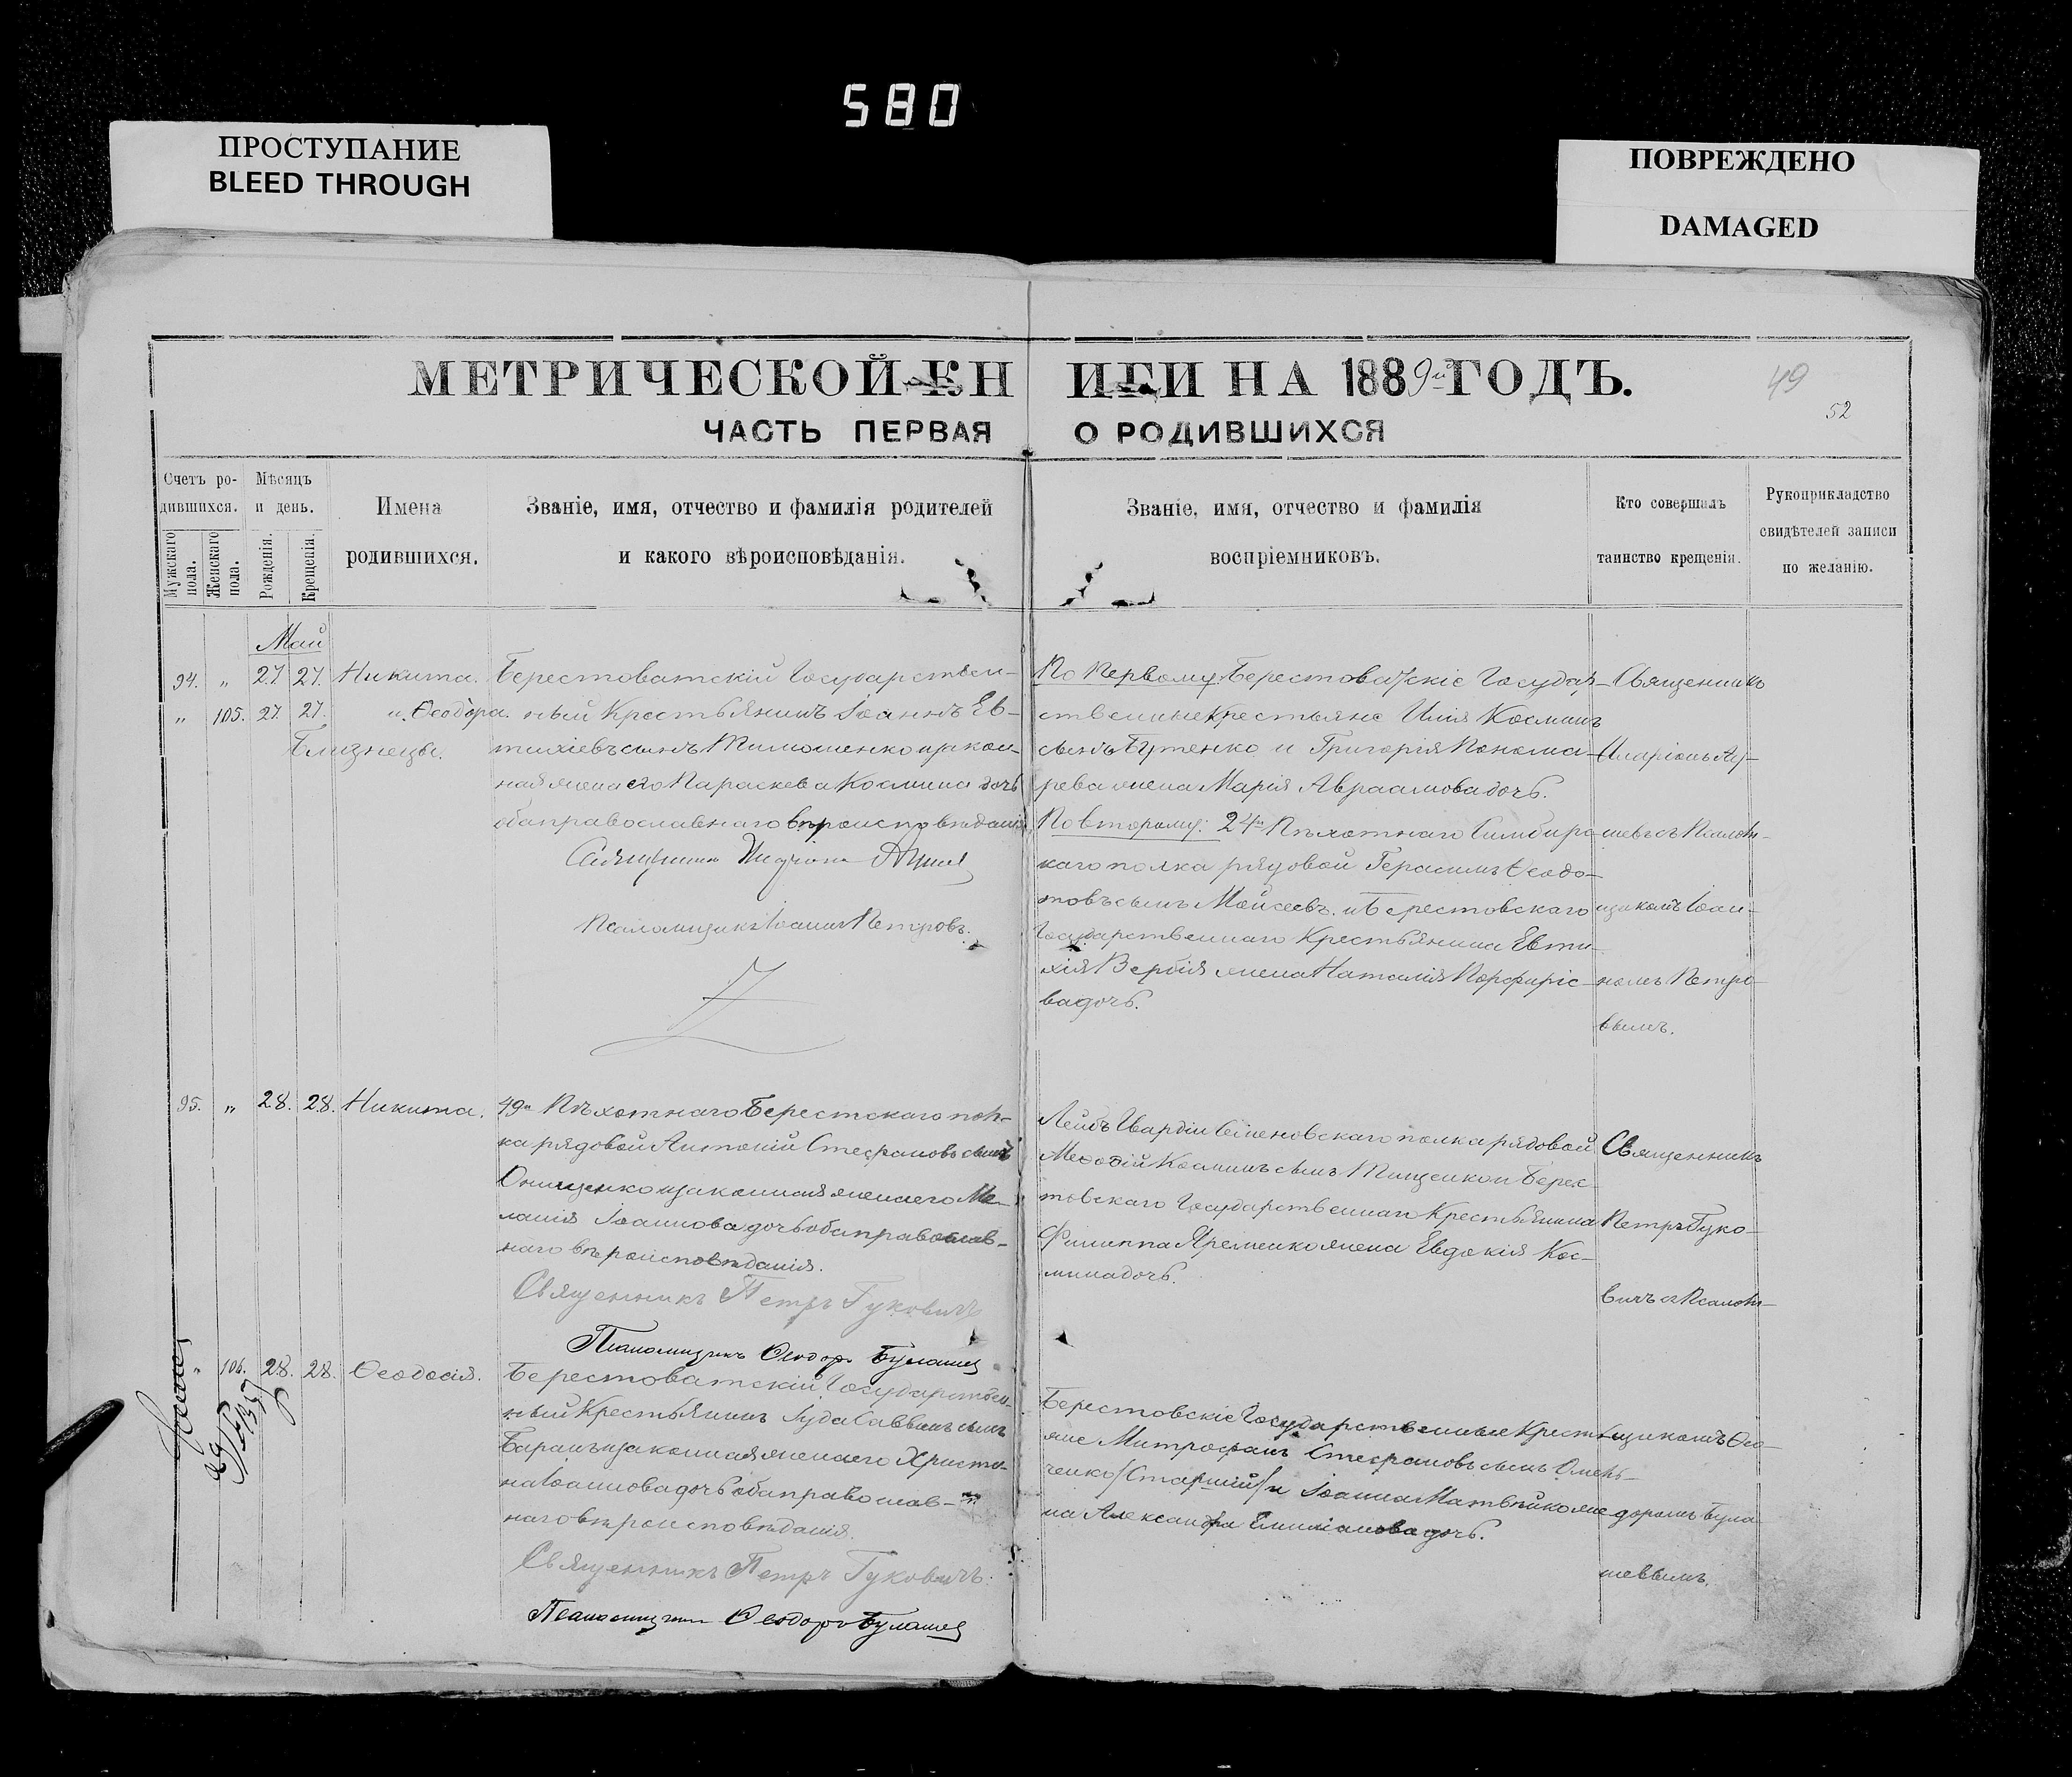 580
ПРОСТУПАНИЕ
BLEED THROUGH
ПОВРЕЖДЕНО
DAMAGED
МЕТРИЧЕСКОЙ КНИГИ НА 1889й ГОДЪ.
49
52
ЧАСТЬ ПЕРВАЯ О РОДИВШИХСЯ
Счетъ ро-
дившихся.
Мужскаго
пола.
Женскаго
пола.
Мѣсяцъ
и день.
Рожденія.
Крещенія.
Имена
родившихся.
Званіе, имя, отчество и фамилія родителей
и какого вѣроисповѣданія.
Званіе, имя, отчество и фамилія
воспріемниковъ.
Кто совершалъ
таинство крещенія.
Рукоприкладство
свидѣтелей записи
по желанію.
Май
94. „ 27. 27. Никита
„ 105. 27. 27. и Ѳеодора.
Близнецы.
Берестоватскій Государствен-
ный Крестьянинъ Іоаннъ Ев-
тихіевъ сынъ Тимошенко и закон-
ная жена его Параскева Космина дочь
оба православнаго вѣроисповѣданія
Священникъ
Псаломщикъ Іоаннъ Петровъ.
По первому: Берестоватскіе Государ-
ственные Крестьяне Илія Косминъ
сынъ Бутенко и Григорія Понома-
рева жена Марія Авраамова дочь.
По второму: 24го Пѣхотнаго Симбирс-
каго полка рядовой Герасимъ Ѳеодо-
товъ сынъ Моисеевъ и Берестовскаго
Государственнаго Крестьянина Евти-
хія Вербія жена Наталія Порфиріе-
ва дочь.
Священникъ
Иларіонъ
шевъ съ Псалом-
щикомъ Іоан-
номъ Петро-
вымъ.
95. „ 28. 28. Никита.
49го Пѣхотнаго Брестскаго пол-
ка рядовой Антоній Стефановъ сынъ
Онищенко и законная жена его Ме-
ланія Іоаннова дочь оба православ-
наго вѣроисповѣданія.
Священникъ Петръ Гуковичъ
Псаломщикъ Ѳеодоръ Булашев
Лейбъ Гвардіи Семеновскаго полка рядовой
Меѳодій Косминъ сынъ Тищенко и Берес-
товскаго Государственнаго Крестьянина
Филиппа Яременко жена Евдокія Кос-
мина дочь.
Священникъ
Петръ Гуко-
вичъ съ Псалом-
„ 106. 28. 28. Ѳеодосія.
Берестоватскій Государствен-
ный Крестьянинъ Іуда Саввинъ сынъ
Баранъ и законная жена его Христи-
на Іоаннова дочь оба православ-
наго вѣроисповѣданія.
Священникъ Петръ Гуковичъ.
Псаломщикъ Ѳеодоръ Булашев
Берестовскіе Государственные Кресть-
яне Митрофанъ Стефановъ сынъ Омель-
ченко /Старшій/ и Іоанна Матвѣйко же-
на Александра Емиліанова дочь.
щикомъ Ѳео-
доромъ Була-
шевымъ.